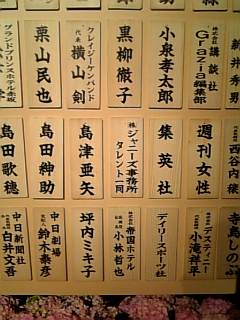 新井秀
株式会社
講談社
Grazia編集部
小泉孝太郎
黒柳徹子
クレイジーケンバンド
代表 横山剣
栗山民也
グランドプリンスホテル赤坂
西谷内
週刊女性
集英社
㈱ジャニーズ事務所
タレント一同
島津亜矢
島田紳助
島田歌穂
寺島しのぶ
株式会社 デスティニー
小滝祥平
デイリースポーツ社
株式会社 帝国ホテル
小林哲也
坪内ミキ子
中日劇場
鈴木泰彦
中日新聞社
白井文吾